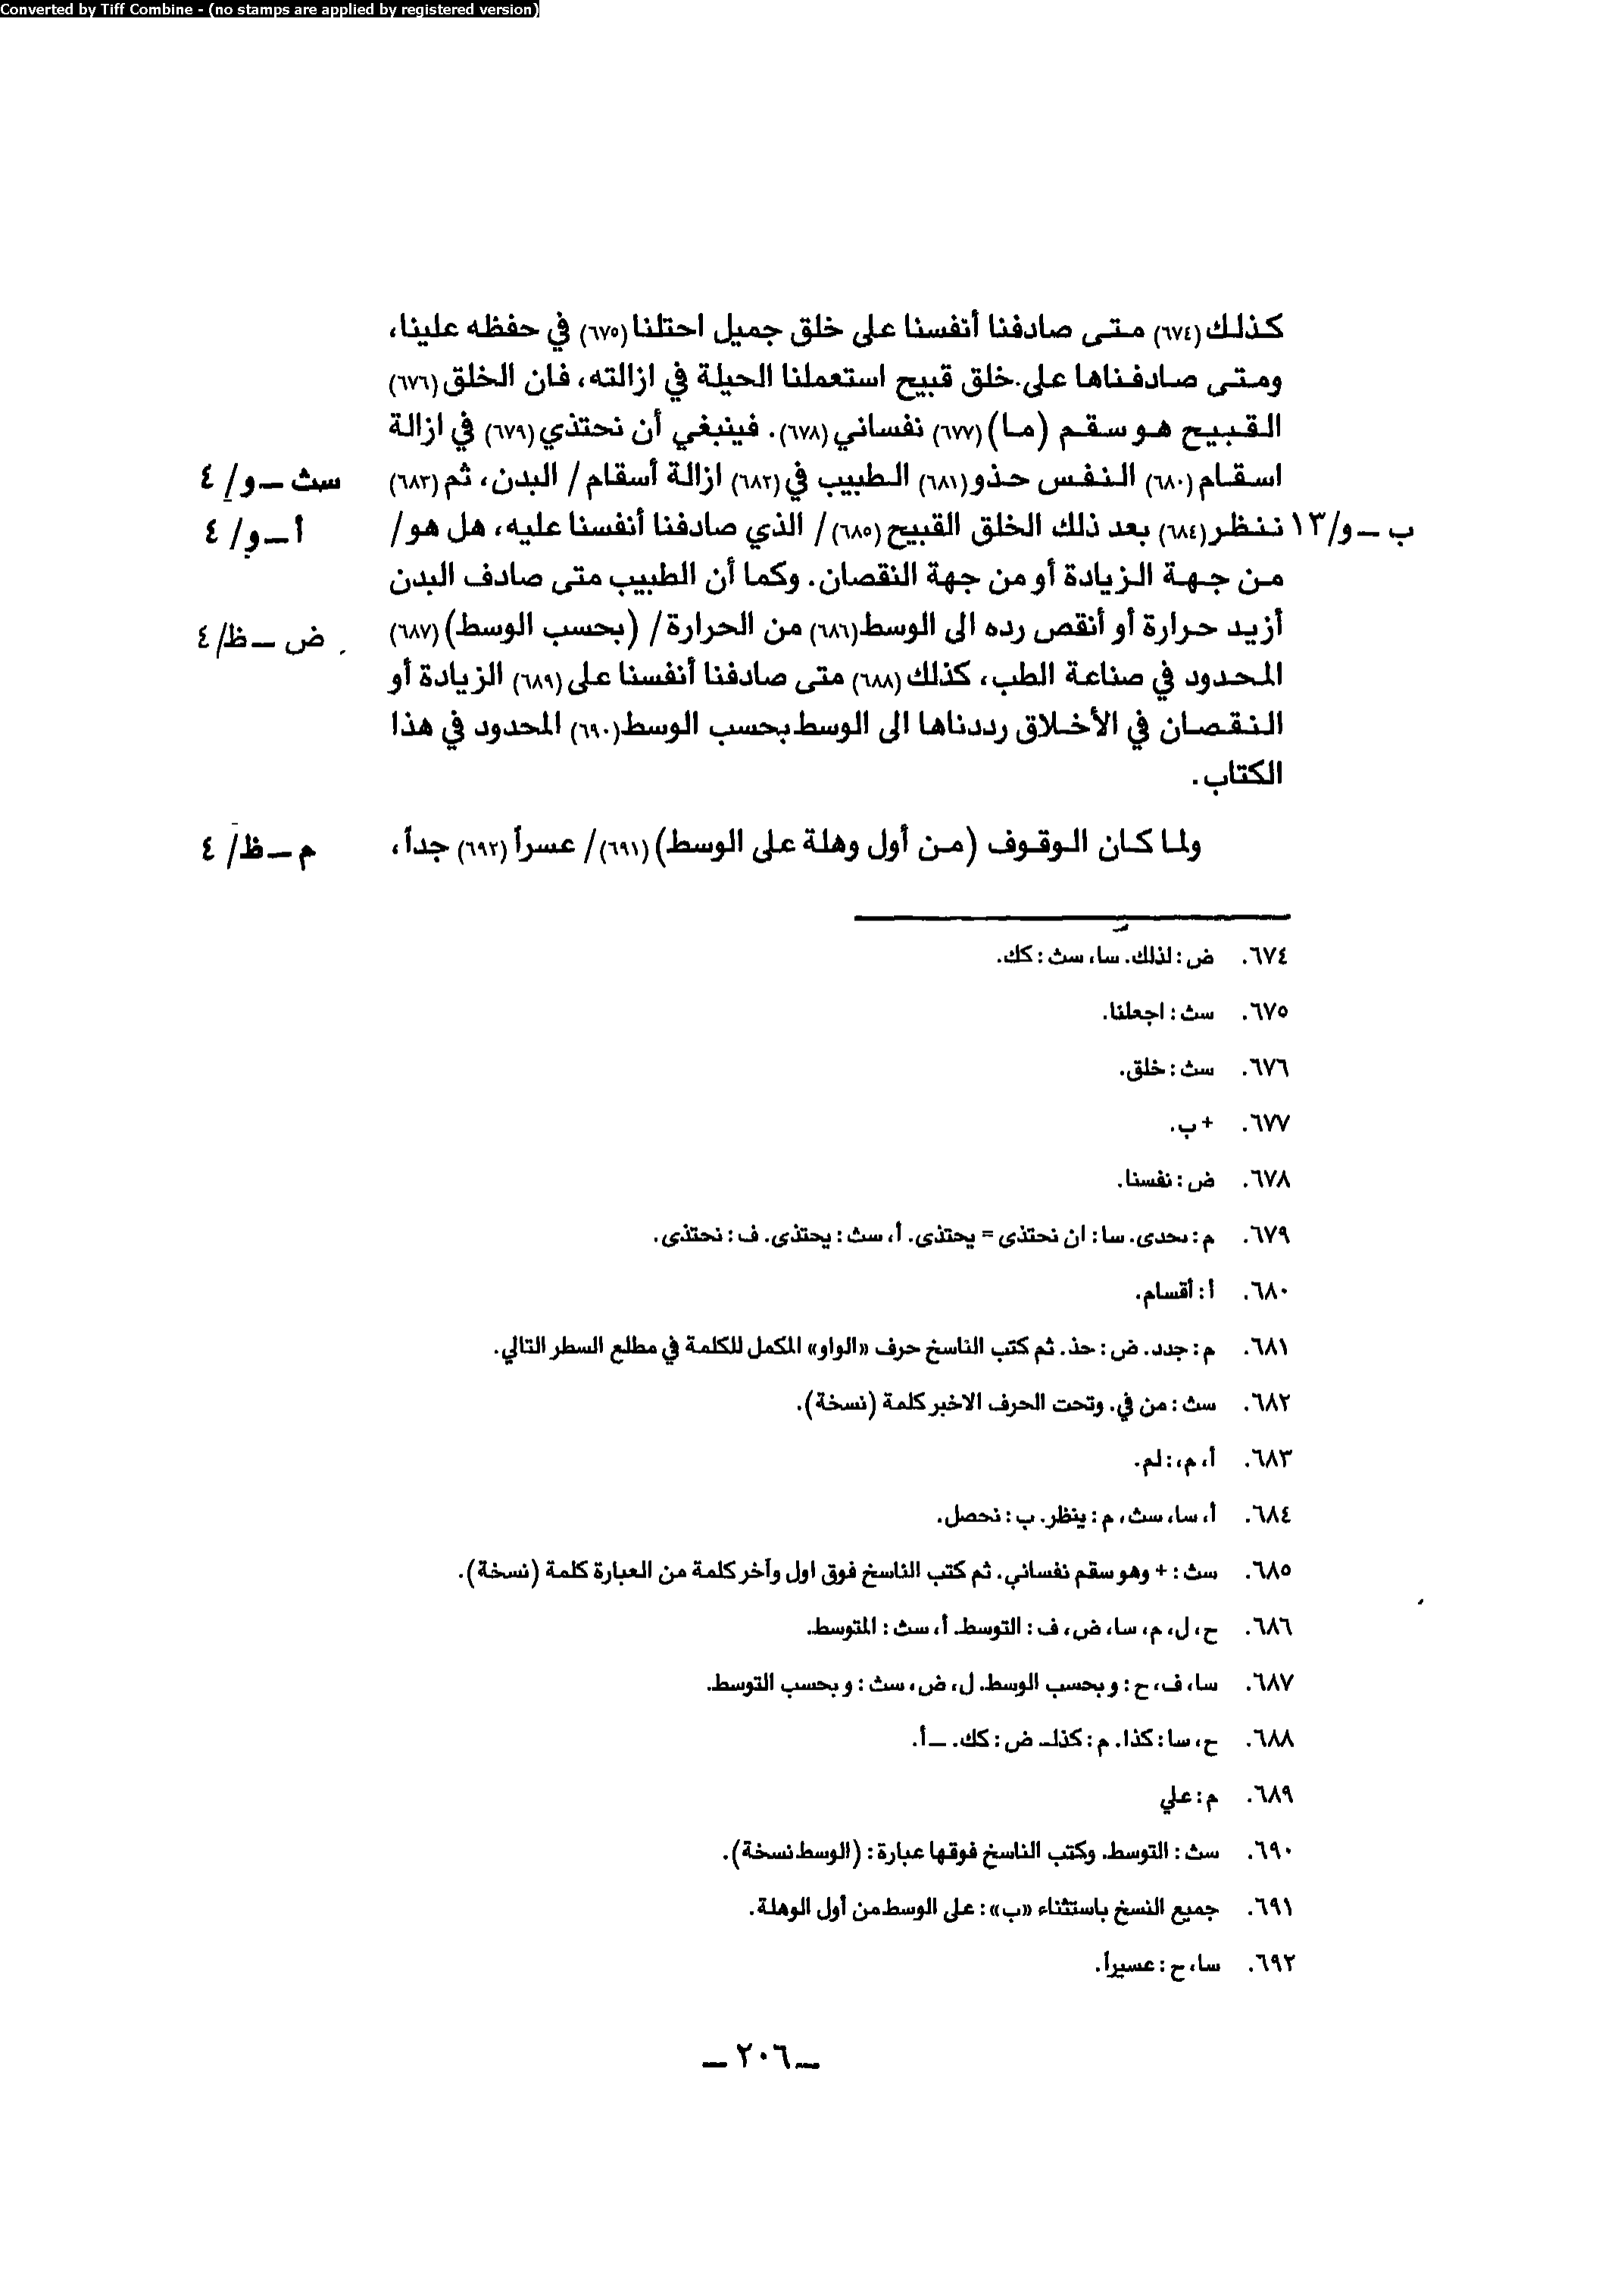 Converted by Tiff Combine - (no stamps are applied by registered version)
كذلك (٦٧٤) متى صادفنا أنفسنا على خلق جميل احتلنا (٦٧٥) في حفظه علينا،
ومتى صادفناها على خلق قبيح استعملنا الحيلة في ازالته، فان الخلق (٦٧٦)
القبيح هو سقم (ما) (٦٧٧) نفساني (٦٧٨). فينبغي أن نحتذي (٦٧٩) في ازالة
اسقام (٦٨٠) النفس حذو (٦٨١) الطبيب في (٦٨٢) ازالة أسقام / البدن، ثم (٦٨٣) سث – و/ ٤
ب – و/١٣ ننظر (٦٨٤) بعد ذلك الخلق القبيح (٦٨٥) / الذي صادفنا أنفسنا عليه، هل هو/ أ – و/ ٤
من جهة الزيادة أو من جهة النقصان. وكما أن الطبيب متى صادف البدن
أزيد حرارة أو أنقص رده الى الوسط (٦٨٦) من الحرارة / (بحسب الوسط) (٦٨٧) ض – ظ/ ٤
المحدود في صناعة الطب، كذلك (٦٨٨) متى صادفنا أنفسنا على (٦٨٩) الزيادة أو
النقصان في الأخلاق رددناها الى الوسط بحسب الوسط (٦٩٠) المحدود في هذا
الكتاب.
ولما كان الوقوف (من أول وهلة على الوسط) (٦٩١) / عسراً (٦٩٢) جداً، م – ظ/ ٤
٦٧٤. ض : لذلك. سا، سث : كك.
٦٧٥. سث : اجعلنا.
٦٧٦. سث : خلق.
٦٧٧. + ب.
٦٧٨. ض : نفسنا.
٦٧٩. م : ىحدى. سا : ان نحتذى = يحتذى. أ، سث : يحتذى. ف : نحتذى.
٦٨٠. أ : أقسام.
٦٨١. م : جدد. ض : حذ. ثم كتب الناسخ حرف «الواو» المكمل للكلمة في مطلع السطر التالي.
٦٨٢. سث : من في. وتحت الحرف الاخير كلمة (نسخة).
٦٨٣. أ، م، : لم.
٦٨٤. أ، سا، سث، م : ينظر. ب : نحصل.
٦٨٥. سث : + وهو سقم نفساني. ثم كتب الناسخ فوق اول وآخر كلمة من العبارة كلمة (نسخة).
٦٨٦. ح، ل، م، سا، ض، ف : التوسط. أ، سث : المتوسط.
٦٨٧. سا، ف، ح : وبحسب الوسط. ل، ض، سث : وبحسب التوسط.
٦٨٨. ح، سا : كذا. م : كذلـ ض : كك. – أ.
٦٨٩. م : علي
٦٩٠. سث : التوسط. وكتب الناسخ فوقها عبارة : (الوسط نسخة).
٦٩١. جميع النسخ باستثناء «ب» : على الوسط من أول الوهلة.
٦٩٢. سا، ح : عسيراً.
– ٢٠٦ –